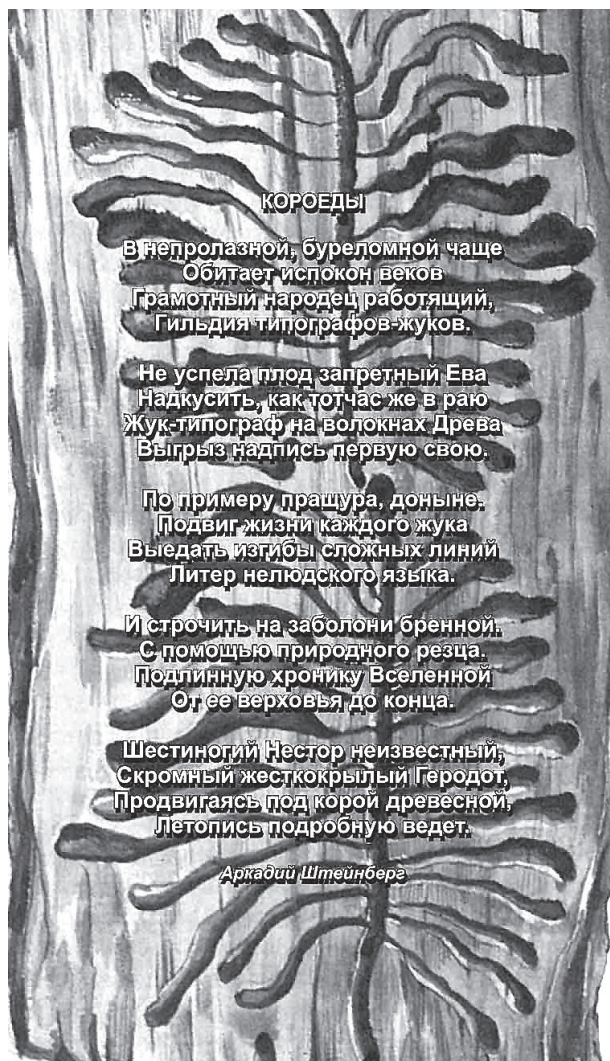 КОРОЕДЫ
В непролазной, буреломной чаще
Обитает испокон веков
Грамотный народец работящий,
Гильдия типографов-жуков.
Не успела плод запретный Ева
Надкусить, как тотчас же в раю
Жук-типограф на волокнах Древа
Выгрыз надпись первую свою.
По примеру пращура, доныне.
Подвиг жизни каждого жука
Выедать изгибы сложных линий
Литер нелюдского языка.
И строчить на заболони бренной.
С помощью природного резца.
Подлинную хронику Вселенной
От ее верховья до конца.
Шестиногий Нестор неизвестный,
Скромный жесткокрылый Геродот,
Продвигаясь под корой древесной,
Летопись подробную ведет.
Аркадий Штейнберг